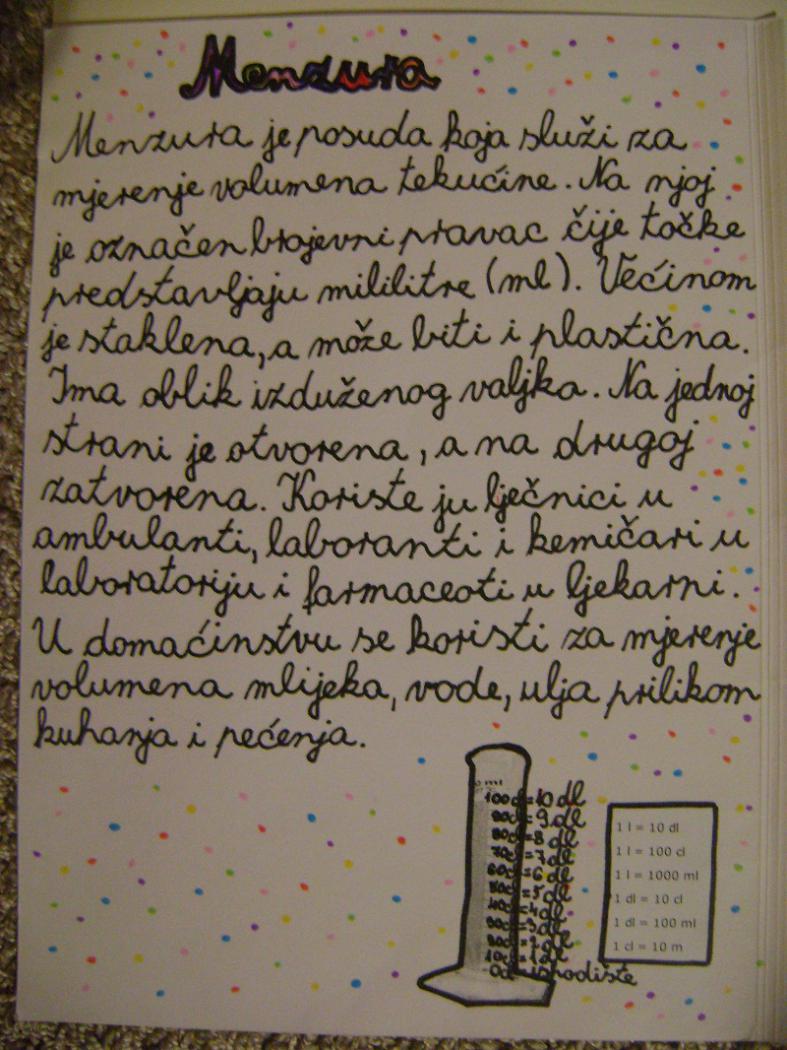 Menzura
Menzura je posuda koja služi za
mjerenje volumena tekućine. Na njoj
je označen brojevni pravac čije točke
predstavljaju mililitre (ml). Većinom
je staklena, a može biti i plastična.
Ima oblik izduženog valjka. Na jednoj
strani je otvorena, a na drugoj
zatvorena. Koriste ju lječnici u
ambulanti, laboranti i kemičari u
laboratoriju i farmaceoti u ljekarni.
U domaćinstvu se koristi za mjerenje
volumena mlijeka, vode, ulja prilikom
kuhanja i pećenja.
ml
100cl=10 dl
90cl=9 dl
80cl=8 dl
70cl=7 dl
60cl=6 dl
50cl=5 dl
40cl=4 dl
30cl=3 dl
20cl=2 dl
10cl=1 dl
0cl=ishodište
1 l = 10 dl
1 l = 100 cl
1 l = 1000 ml
1 dl = 10 cl
1 dl = 100 ml
1 cl = 10 m